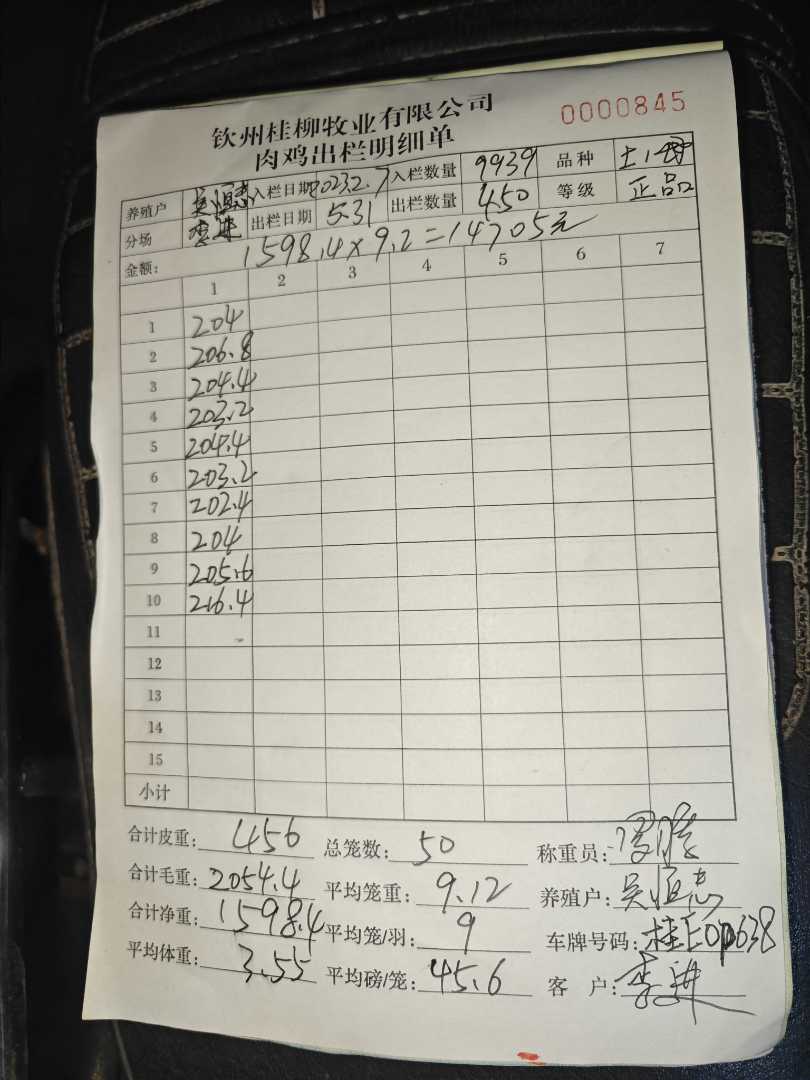 钦州桂柳牧业有限公司
0000845
肉鸡出栏明细单
养殖户 吴恒志 入栏日期 2023.2.7 入栏数量 9939 品种
分场 李进 出栏日期 5.31 出栏数量 450 等级 正品
金额: 1598.4×9.2=14705元
1 2 3 4 5 6 7
1 204
2 206.8
3 204.4
4 203.2
5 204.4
6 203.2
7 202.4
8 204
9 205.6
10 216.4
11
12
13
14
15
小计
合计皮重: 456 总笼数: 50 称重员:
合计毛重: 2054.4 平均笼重: 9.12 养殖户: 吴恒志
合计净重: 1598.4 平均笼/羽: 9 车牌号码:
平均体重: 3.55 平均磅/笼: 45.6 客户: 李进